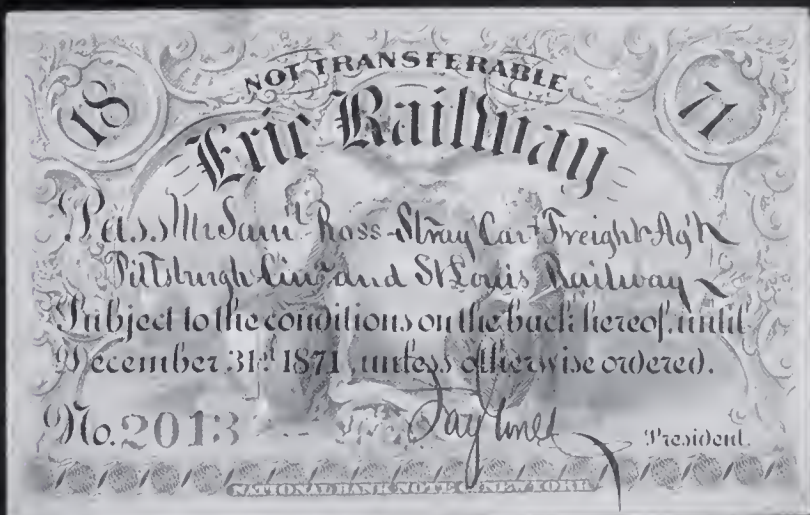 NOT TRANSFERABLE
18 71
Erie Railway
Pass Mr Saml Ross - Stray Car & Freight Agt
Pittsburgh Cin. and St Louis Railway
Subject to the conditions on the back hereof, until
December 31st 1871, unless otherwise ordered.
No. 2013 Jay Gould President.
NATIONAL BANK NOTE Co NEW YORK